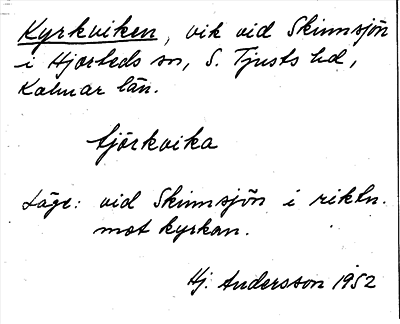 Kyrkviken, vik vid Skinnsjön
i Hjorteds sn, S. Tjusts hd,
Kalmar län.
tjörkvika
Läge: vid Skinnsjön i riktn.
mot kyrkan.
Hj. Andersson 1952